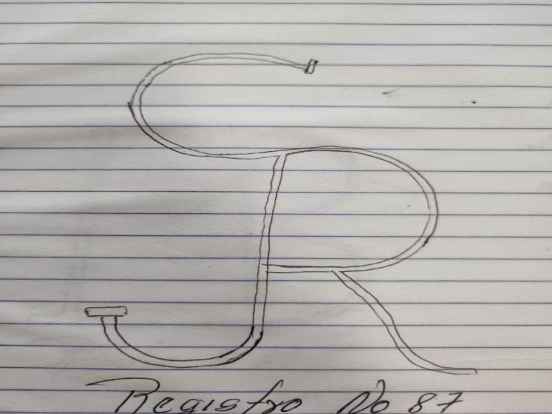 SR
Registro No 87